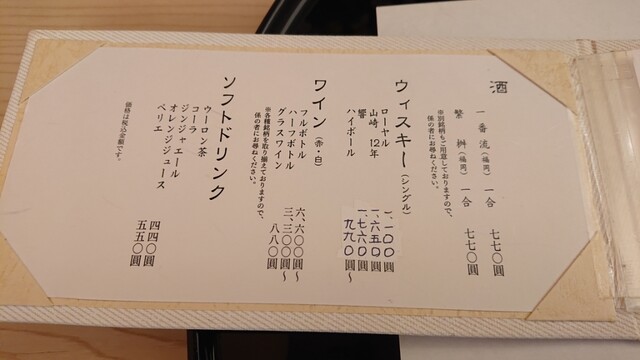 酒
一番流(福岡) 一合 七七〇圓
繁桝(福岡) 一合 七七〇圓
※別銘柄もご用意しておりますので、
係の者にお尋ねください。
ウィスキー(シングル)
ローヤル 一、一〇〇圓
山崎、12年 一、六五〇圓
響 一、七六〇圓
ハイボール 九九〇圓〜
ワイン(赤・白)
フルボトル 六、六〇〇圓〜
ハーフボトル 三、三〇〇圓〜
グラスワイン 八八〇圓
※各種銘柄を取り揃えておりますので、
係の者にお尋ねください。
ソフトドリンク
ウーロン茶
コーラ
ジンジャエール
オレンジジュース 四四〇圓
ペリエ 五五〇圓
価格は税込金額です。